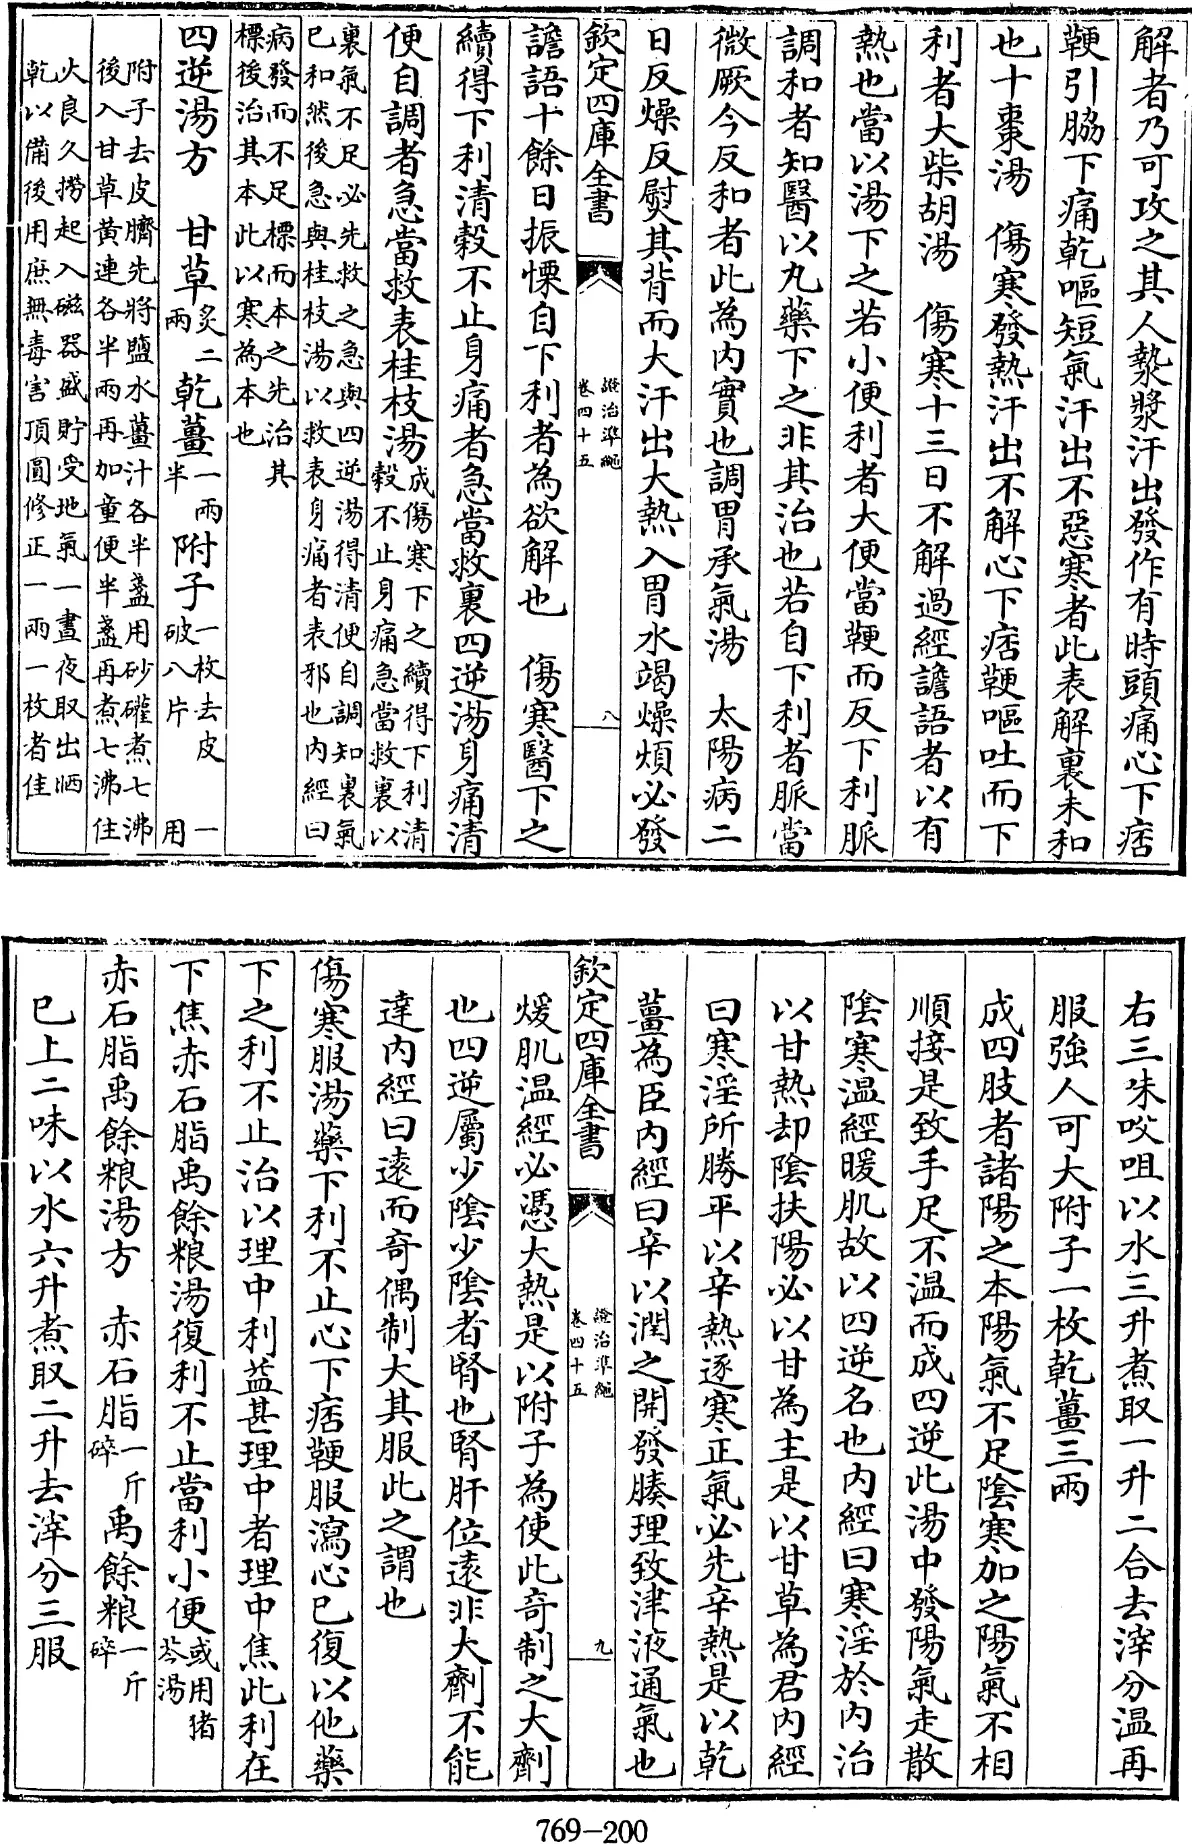 解者乃可攻之其人漐漐汗出發作有時頭痛心下痞
鞕引脇下痛乾嘔短氣汗出不惡寒者此表解裏未和
也十棗湯　傷寒發熱汗出不解心下痞鞕嘔吐而下
利者大柴胡湯　傷寒十三日不解過經譫語者以有
熱也當以湯下之若小便利者大便當鞕而反下利脈
調和者知醫以丸藥下之非其治也若自下利者脈當
微厥今反和者此為内實也調胃承氣湯　太陽病二
日反燥反熨其背而大汗出大熱入胃水竭燥煩必發
欽定四庫全書
證治準繩
卷四十五
八
譫語十餘日振慄自下利者為欲解也　傷寒醫下之
續得下利清穀不止身痛者急當救裏四逆湯身痛清
便自調者急當救表桂枝湯成傷寒下之續得下利清
穀不止身痛急當救裏以
裏氣不足必先救之急與四逆湯得清便自調知裏氣
已和然後急與桂枝湯以救表身痛者表邪也内經曰
病發而不足標而本之先治其
標後治其本此以寒為本也
四逆湯方　甘草炙二
兩乾薑一兩
半附子一枚去皮
破八片　一
用
附子去皮臍先將鹽水薑汁各半盞用砂礶煮七沸
後入甘草黃連各半兩再加童便半盞再煮七沸住
火良久撈起入磁器盛貯受地氣一晝夜取出晒
乾以備後用庶無毒害頂圓修正一兩一枚者佳
右三味㕮咀以水三升煮取一升二合去滓分温再
服強人可大附子一枚乾薑三兩
成四肢者諸陽之本陽氣不足陰寒加之陽氣不相
順接是致手足不温而成四逆此湯中發陽氣走散
陰寒温經暖肌故以四逆名也内經曰寒淫於内治
以甘熱却陰扶陽必以甘為主是以甘草為君内經
曰寒淫所勝平以辛熱逐寒正氣必先辛熱是以乾
薑為臣内經曰辛以潤之開發腠理致津液通氣也
欽定四庫全書
證治準繩
卷四十五
九
煖肌温經必憑大熱是以附子為使此奇制之大劑
也四逆屬少陰少陰者腎也腎肝位遠非大劑不能
達内經曰遠而奇偶制大其服此之謂也
傷寒服湯藥下利不止心下痞鞕服瀉心已復以他藥
下之利不止治以理中利益甚理中者理中焦此利在
下焦赤石脂禹餘粮湯復利不止當利小便或用猪
苓湯
赤石脂禹餘粮湯方　赤石脂一斤
碎禹餘粮一斤
碎
已上二味以水六升煮取二升去滓分三服
769-200